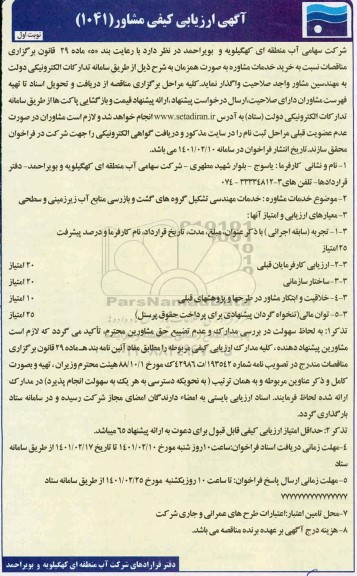 آگهی ارزیابی کیفی مشاور (۱۰۴۱)
نوبت اول
شرکت سهامی آب منطقه ای کهگیلویه و بویراحمد در نظر دارد با رعایت بند «ه» ماده ۲۹ قانون برگزاری
مناقصات نسبت به خرید خدمات مشاوره به صورت همزمان به شرح ذیل از طریق سامانه تدارکات الکترونیکی دولت
به مهندسین مشاور واجد صلاحیت واگذار نماید. کلیه مراحل برگزاری مناقصه از دریافت و تحویل اسناد تا تهیه
فهرست مشاوران دارای صلاحیت، ارسال درخواست پیشنهاد، ارائه پیشنهاد قیمت و بازگشایی پاکت ها از طریق سامانه
تدارکات الکترونیکی دولت (ستاد) به آدرس www.setadiran.ir انجام خواهد شد و لازم است مشاوران در صورت
عدم عضویت قبلی مراحل ثبت نام را در سایت مذکور و دریافت گواهی الکترونیکی را جهت شرکت در فراخوان
محقق سازند. تاریخ انتشار فراخوان در سامانه ۱۴۰۱/۰۲/۱۰ می باشد.
۱- نام و نشانی کارفرما: یاسوج - بلوار شهید مطهری - شرکت سهامی آب منطقه ای کهگیلویه و بویراحمد- دفتر
قراردادها- تلفن های ۳-۳۳۳۳۴۸۱۲ - ۰۷۴
۲- موضوع خدمات مشاوره: خدمات مهندسی تشکیل گروه های گشت و بازرسی منابع آب زیرزمینی و سطحی
۳- معیارهای ارزیابی و امتیاز آنها:
۳-۱- تجربه (سابقه اجرائی) با ذکر عنوان، مبلغ، مدت، تاریخ قرارداد، نام کارفرما و درصد پیشرفت
۲۵ امتیاز
۳-۲- ارزیابی کارفرمایان قبلی ۲۰ امتیاز
۳-۳- ساختار سازمانی ۲۰ امتیاز
۳-۴- خلاقیت و ابتکار مشاور در طرحها و پروژهشهای قبلی ۱۰ امتیاز
۳-۵- توان مالی (تنخواه گردان پیشنهادی برای پرداخت حقوق پرسنل) ۲۵ امتیاز
تذکر۱: به لحاظ سهولت در بررسی مدارک و عدم تضییع حق مشاورین محترم، تأکید می گردد که لازم است
مشاورین پیشنهاد دهنده، کلیه مدارک ارزیابی کیفی مربوطه را مطابق مفاد آئین نامه بند هـ ماده ۲۹ قانون برگزاری
مناقصات مندرج در تصویب نامه شماره ۱۹۳۵۴۲/ت۴۲۹۸۶ک مورخ ۸۸/۱۰/۱ هیئت محترم وزیران، تهیه و بصورت
کامل و ذکر عناوین مربوطه و به همان ترتیب (به نحویکه دسترسی به هر یک به سهولت انجام پذیرد) در مدارک
ارائه شده لحاظ فرمایند. اسناد ارزیابی بایستی به امضاء دارندگان امضای مجاز شرکت رسیده و در سامانه ستاد
بارگذاری گردد.
تذکر ۲: حداقل امتیاز ارزیابی کیفی قابل قبول برای دعوت به ارائه پیشنهاد ۶۵ میباشد.
۴-مهلت زمانی دریافت اسناد فراخوان: ساعت ۱۰ روز شنبه مورخ ۱۴۰۱/۰۲/۱۰ تا تاریخ ۱۴۰۱/۰۲/۱۷ از طریق سامانه
ستاد
۵-مهلت زمانی ارسال پاسخ فراخوان: تا ساعت ۱۰ روز یکشنبه مورخ ۱۴۰۱/۰۲/۲۵ از طریق سامانه ستاد
۷-محل تامین اعتبار: اعتبارات طرح های عمرانی و جاری شرکت
۸-هزینه درج آگهی بر عهده برنده مناقصه می باشد.
دفتر قراردادهای شرکت آب منطقه ای کهگیلویه و بویراحمد